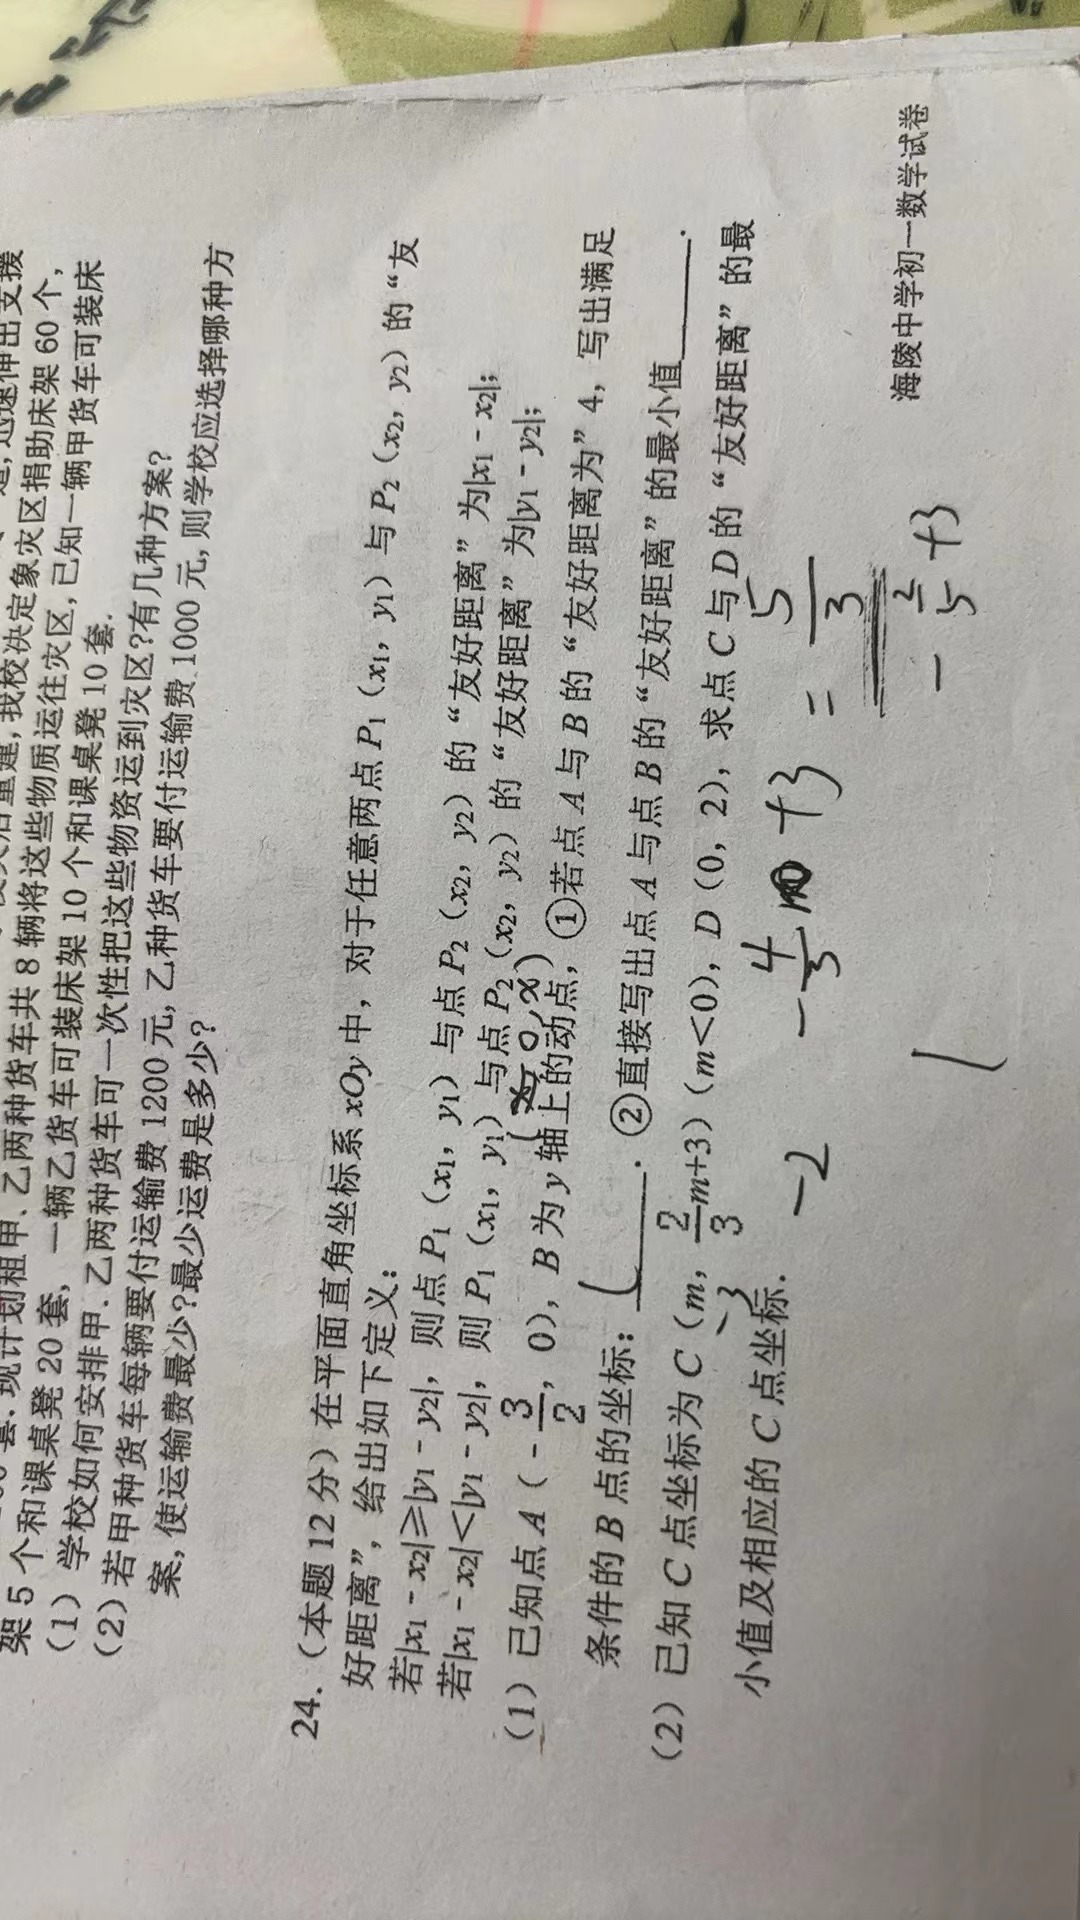 架 5 个和课桌凳 20 套, 一辆乙货车可装床架 10 个和课桌凳 10 套.
(1) 学校如何安排甲、乙两种货车可一次性把这些物资运到灾区?有几种方案?
(2) 若甲种货车每辆要付运输费 1200 元, 乙种货车要付运输费 1000 元, 则学校应选择哪种方
案, 使运输费最少?最少运费是多少?
24.(本题 12 分) 在平面直角坐标系 xOy 中, 对于任意两点 P₁(x₁, y₁) 与 P₂(x₂, y₂) 的“友
好距离”, 给出如下定义:
若|x₁ - x₂|≥|y₁ - y₂|, 则点 P₁(x₁, y₁) 与点 P₂(x₂, y₂) 的“友好距离”为|x₁ - x₂|;
若|x₁ - x₂|<|y₁ - y₂|, 则 P₁(x₁, y₁) 与点 P₂(x₂, y₂) 的“友好距离”为|y₁ - y₂|;
(0, x)
(1) 已知点 A(-3/2, 0), B 为 y 轴上的动点, ①若点 A 与 B 的“友好距离为”4, 写出满足
条件的 B 点的坐标: ( . ②直接写出点 A 与点 B 的“友好距离”的最小值 .
(2) 已知 C 点坐标为 C(m, 2/3m+3)(m<0), D(0, 2), 求点 C 与 D 的“友好距离”的最
小值及相应的 C 点坐标.
-2 -4/3 +3 = 5/3
-2/5 +3
海陵中学初一数学试卷